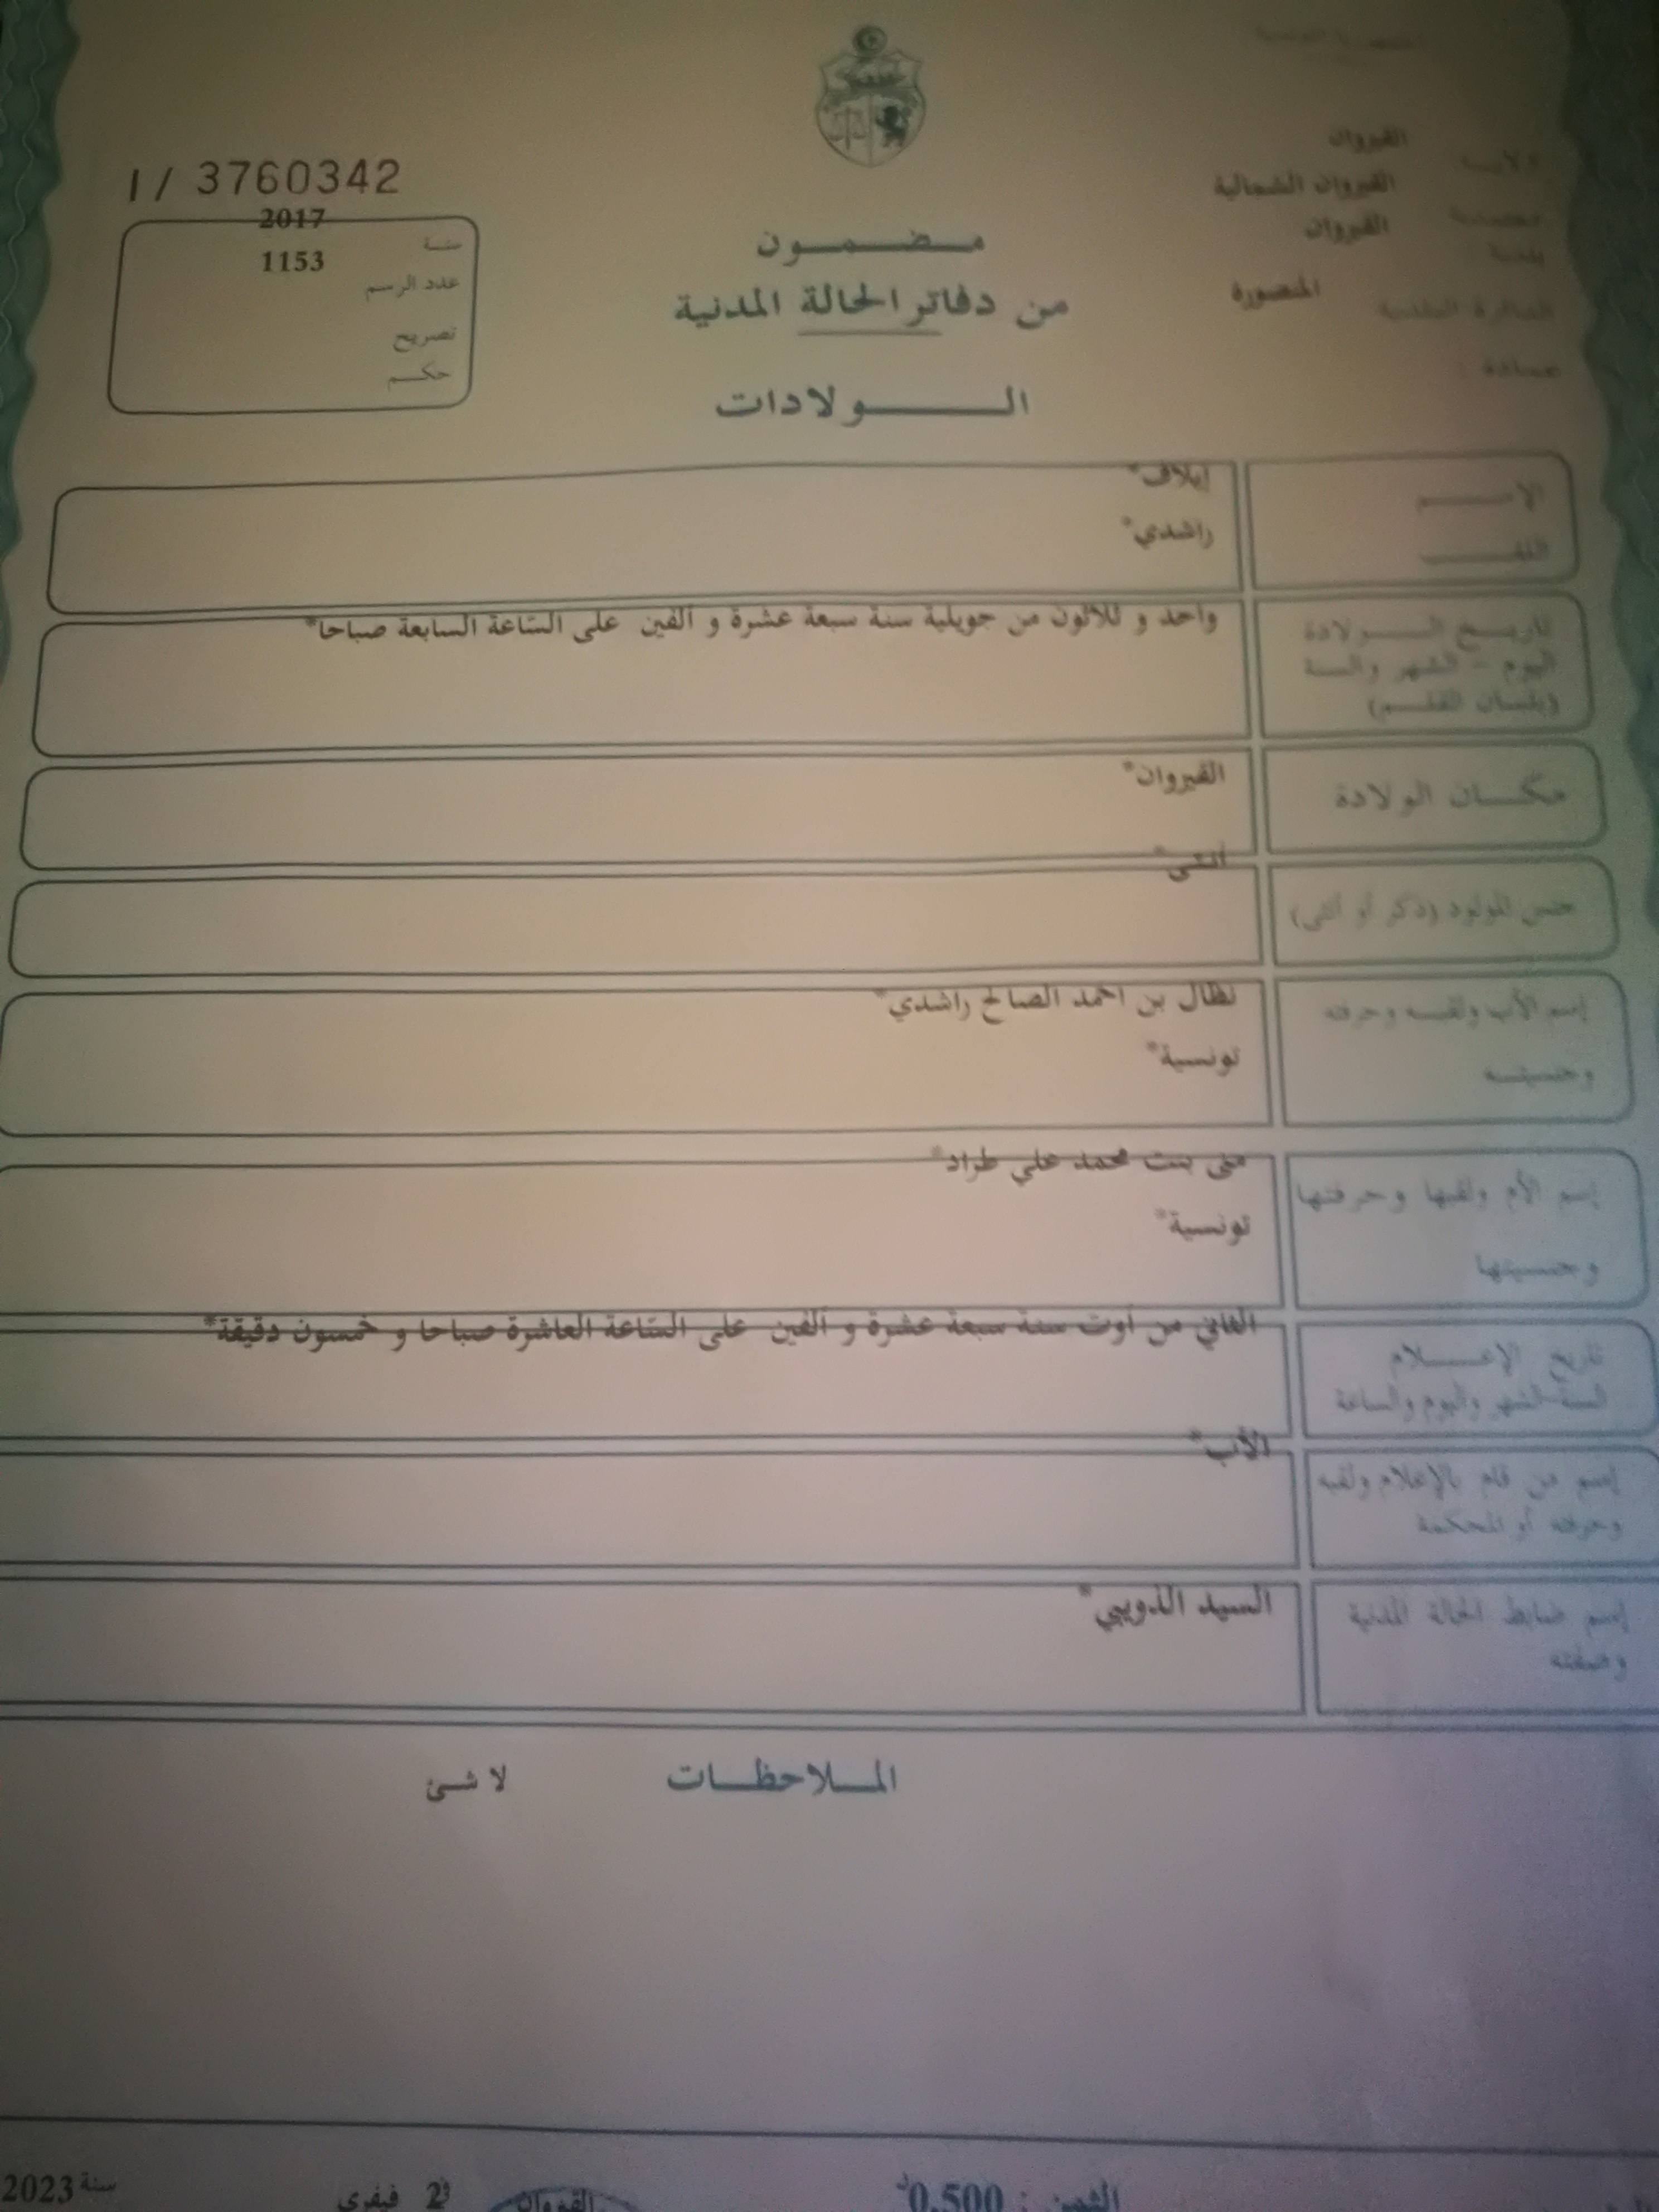 الجمهورية التونسية
ولاية القيروان
معتمدية القيروان الشمالية
بلدية القيروان
الدائرة البلدية المنصورة
عمادة :
1/ 3760342
سنة 2017
عدد الرسم 1153
تصريح
حكم
مضمون
من دفاتر الحالة المدنية
الولادات
الاسم إيلاف*
اللقب راشدي*
تاريخ الولادة واحد و ثلاثون من جويلية سنة سبعة عشرة و ألفين على السّاعة السابعة صباحا*
اليوم - الشهر والسنة
(بلسان القلم)
مكان الولادة القيروان*
جنس المولود (ذكر أو أنثى) أنثى*
إسم الأب ولقبه وحرفته نظال بن احمد الصالح راشدي*
وجنسيته تونسية*
إسم الأم ولقبها وحرفتها منى بنت محمد علي طراد*
وجنسيتها تونسية*
تاريخ الإعلام الثاني من أوت سنة سبعة عشرة و ألفين على السّاعة العاشرة صباحا و خمسون دقيقة*
السنة الشهر واليوم والساعة
إسم من قام بالإعلام ولقبه الأب*
وحرفته أو المحكمة
إسم ضابط الحالة المدنية السيد الذويبي*
وصفته
الملاحظات لا شئ
الثمن : 0,500د القيروان فيفري سنة 2023